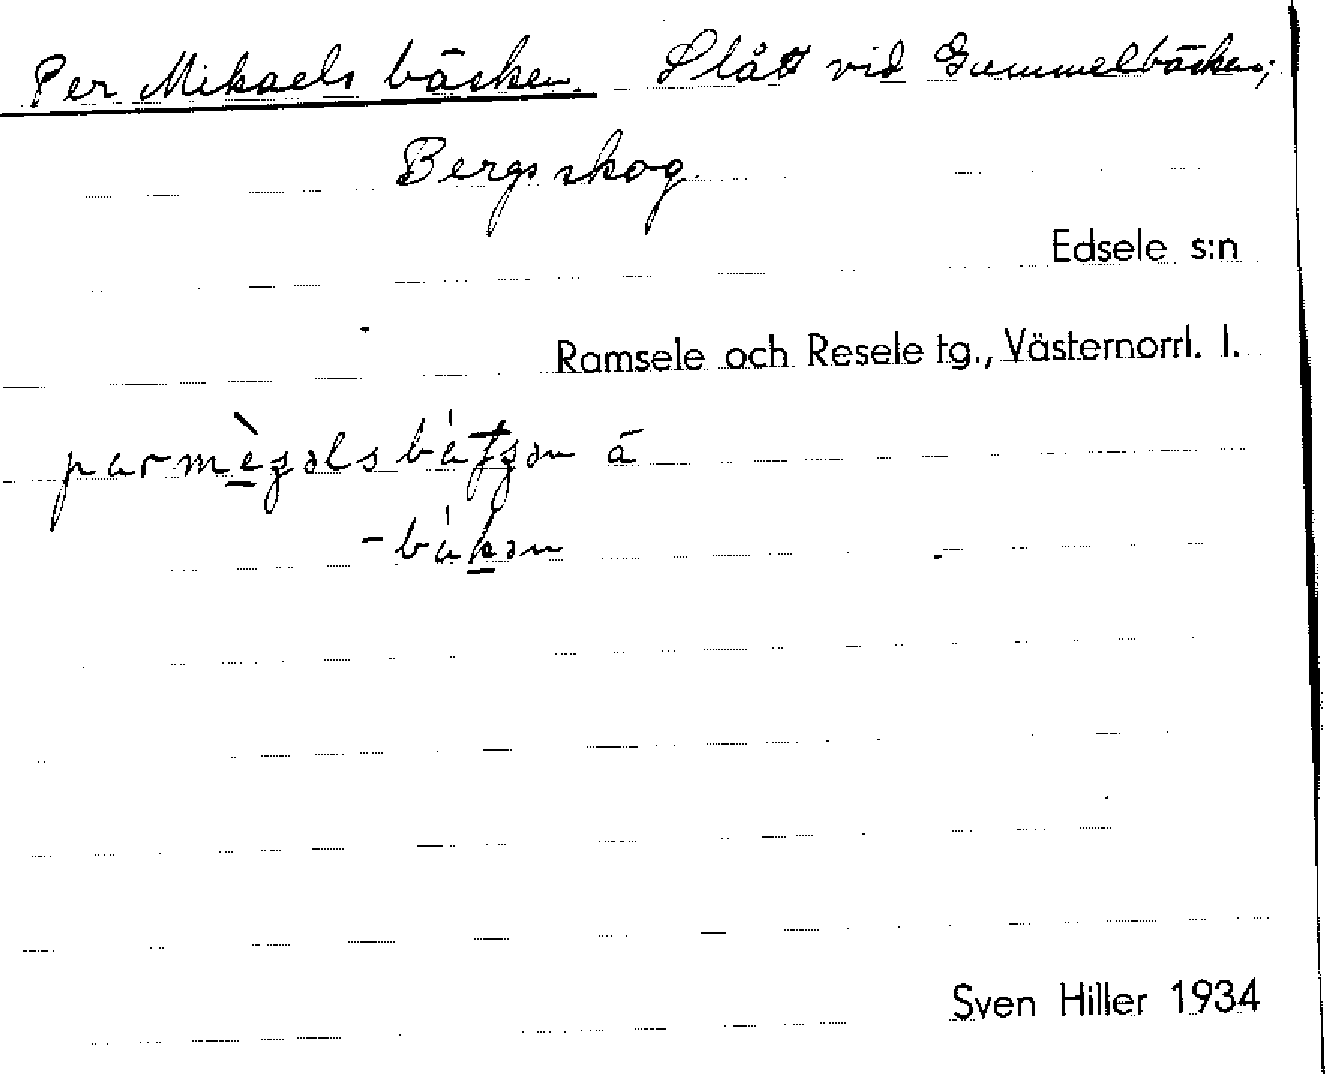 Per Mikaels bäcken. Slått vid Gummelbäcken;
Bergs skog.
Edsele s:n
Ramsele och Resele tg., Västernorrl. l.
å
Sven Hiller 1934